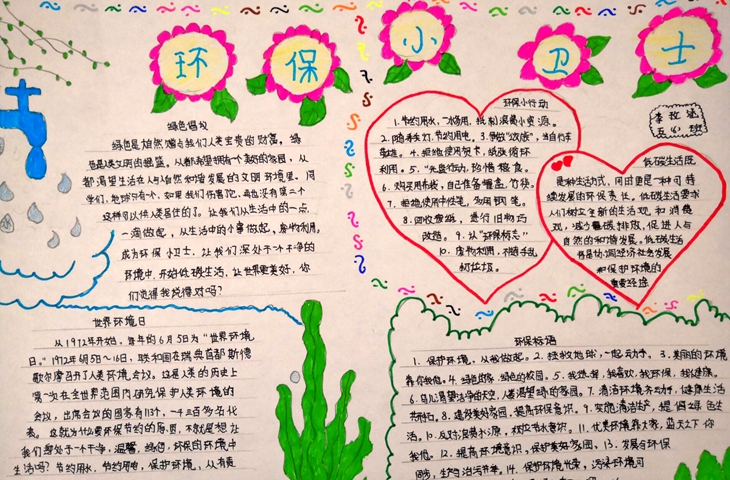 环保小卫士
绿色倡议
绿色是大自然赐与我们人类宝贵的财富。绿
色是人类文明的摇篮。从都渴望拥有个美丽的家园,从
都渴望生活在人与自然和谐发展的文明环境里。同
学们,地球只有一个,如果我们伤害她,再也没有第二个
这样可以供人类居住的了。让我们从生活中的一点
一滴做起,从生活中的小事做起,废物利用,
成为环保小卫士,让我们深处于个干净的
环境中,开始低碳生活,让世界更美好,你
们觉得我说得对吗?
世界环境日
从1972年开始,每年的6月5日为"世界环境
日。"1972年6月5日~16日,联和国在瑞典首都斯德
歌尔摩召开了人类环境会议。这是人类的历史上
第一次在全世界范围内研究保护人类环境的
会议,出席会议的国家有113个,一千三百多名代
表。这就为什么要环保节约的原因,不就是想让
我们都处于个干净,温馨,绿色,环保的环境中
生活吗?节约用水,节约用电,保护环境,从有我
环保小行动
1.节约用水,一水多用,抵制浪费水资源。
2.随手关灯,节约用电。3.争做"
英雄。4.拒绝使用贺卡,纸张循环
利用。5."光盘行动,珍惜粮食。
6.购买用布袋,自己准备餐盒,竹筷。
7.拒绝使用中性笔,多用钢笔。
8.回收废纸,进行旧物巧
改造。9.认"环保标志"
10.废物利用,不随手乱
扔垃圾。
五(2)班
低碳生活既
是种生活方式,同时更是一种可持
续发展的环保责任。低碳生活要求
人们树立全新的生活观和消费
观,减少碳排放,促进人与
自然的和谐发展。低碳生活
将是协调经济社会发展
和保护环境的
重要途径
环保标语
1.保护环境,从我做起。2.拯救地球,一起动手。3.美丽的环境
靠你我他。4.绿色的家,绿色的校园。5.我进步,我喜欢,我环保,我健康。
6.鸟儿渴望洁净的天空,人渴望绿的家园。7.清洁环境齐动手,健康生活
共拥有。8.建设美好家园,提高环保意识。9.实施清洁生产,提倡绿色生
活。10.反对浪费水源,树立节水意识。11.优美环境靠大家,蓝天之下你
我他。12.提高环境意识,保护美好家园。13.发展与环保
同步,生产与治污并举。14.保护环境光荣,污染环境可